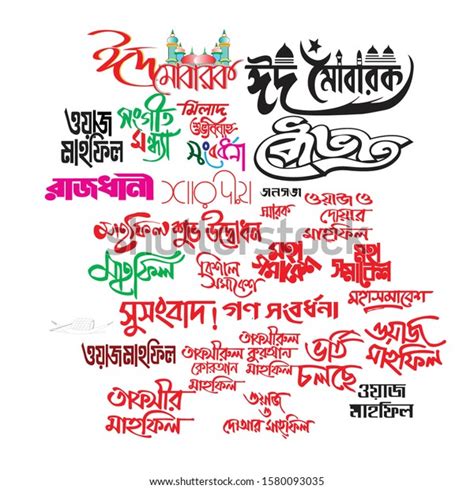 ঈদ মোবারক
ঈদ মোবারক
ওয়াজ
মাহফিল
সংগীত
সন্ধ্যা
মিলাদ
শুভবিবাহ
সংবর্ধনা
রাজধানী
শারদীয়
জনসভা
স্মারক
ওয়াজ ও
দোয়ার
মাহফিল
মাহফিল
শুভ উদ্বোধন
মহা
সমাবেশ
মহা
সমাবেশ
মাহফিল
বিশাল
সমাবেশ
মহাসমাবেশ
সুসংবাদ!
গণ সংবর্ধনা
ওয়াজমাহফিল
তাফসীরুল
কোরআন
মাহফিল
তাফসীরুল
কুরআন
মাহফিল
ভর্তি
চলছে
ওয়াজ
মাহফিল
তাফসীর
মাহফিল
ওয়াজ ও
দোআর মাহফিল
ওয়াজ
মাহফিল
shutterstock
shutterstock.com · 1580093035